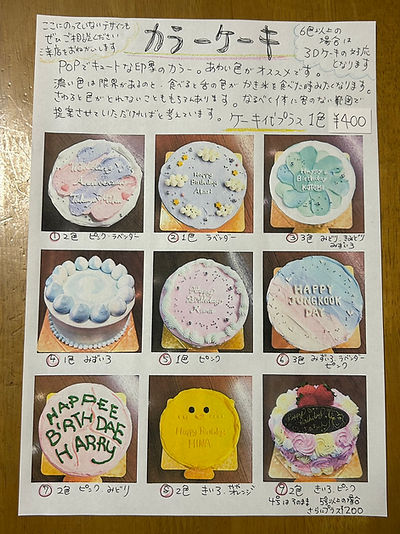 ここにのっていないデザインも
ぜひご相談ください
ご来店をおねがいします
カラーケーキ
6色以上の
場合は
3Dケーキの対応
となります
POPでキュートな印象のカラー。あわい色がオススメです。
濃い色は限界があるのと、食べると舌の色がかき氷を食べた時みたくなります。
さわると色がとれないこともあります。なるべくイオに害のない範囲で
提案させていただければと考えています。ケーキ代プラス1色 ¥400
Anniversary
Happy
Birthday
Happy
Birthday
KOTOMI
① 2色 ピンク・ラベンダー
② 1色 ラベンダー
③ 3色 みどり
みずいろ
Happy
Birthday
HAPPY
JUNGKOOK
DAY
④ 1色 みずいろ
⑤ 1色 ピンク
⑥ 3色 みずいろ ラベンダー
ピンク
HAPPEE
BIRTHDAE
HARRY
Happy Birthday
MINA
⑦ 2色 ピンク みどり
⑧ 2色 きいろ オレンジ
⑨ 2色 きいろ ピンク
4号はそのまま 5号以上の場合
さらにプラス¥200